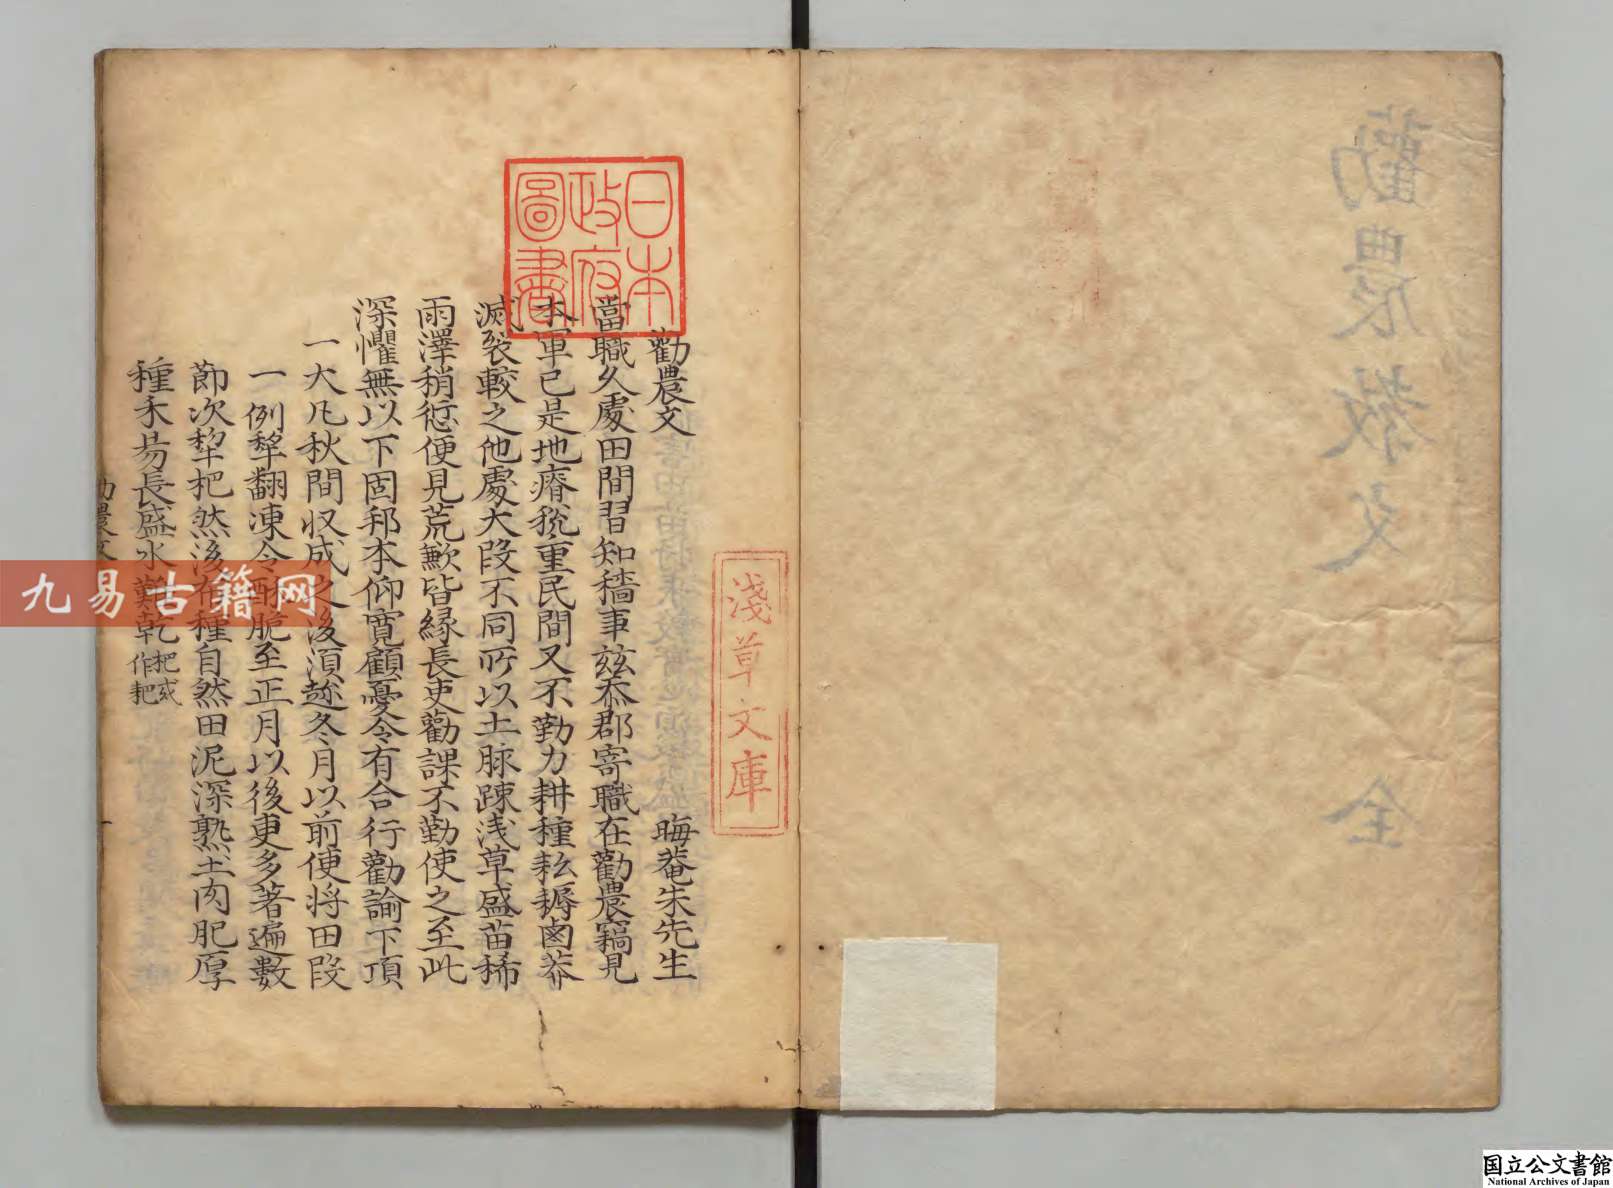 勸農教文 全
日本
政府
圖書
淺草文庫
勸農文 晦菴朱先生
當職久處田間習知穡事兹忝郡寄職在勸農竊見
本軍已是地瘠稅重民間又不勤力耕種耘耨鹵莽
滅裂較之他處大段不同所以土脉踈浅草盛苗稀
雨澤稍愆便見荒歉皆縁長吏勸課不勤使之至此
深懼無以下固邦本仰寛顧憂今有合行勸諭下項
一大凡秋間収成之後須趂冬月以前便将田段
一例犂翻凍令酥脆至正月以後更多著遍數
莭次犂把然後布種自然田泥深熟土肉肥厚
種禾昜長盛水難乾把或作耙
勸農文
一
九易古籍网
国立公文書館
National Archives of Japan